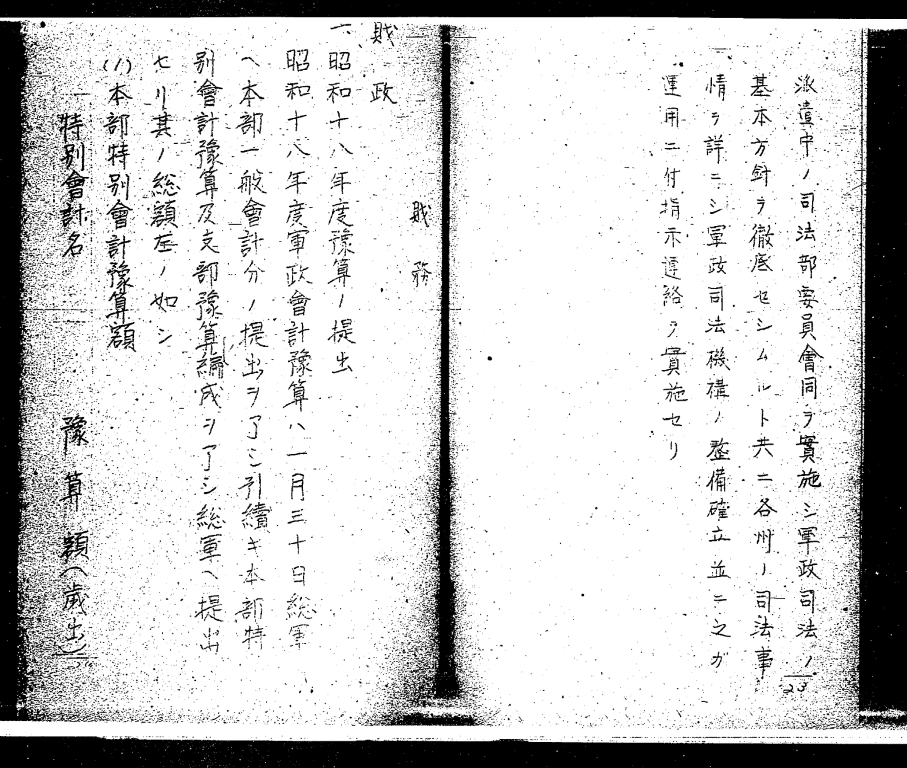 派遣中ノ司法部委員會同ヲ實施シ軍政司法ノ
基本方針ヲ徹底セシムルト共ニ各州ノ司法事
情ヲ詳ニシ軍政司法機構ノ整備確立並ニ之ガ
運用ニ付指示連絡ヲ實施セリ
23
財務
財政
一、昭和十八年度豫算ノ提出
昭和十八年度軍政會計豫算ハ一月三十日総軍
ヘ本部一般會計分ノ提出ヲ了シ引續キ本部特
別會計豫算及支部豫算編成ヲ了シ総軍ヘ提出
セリ其ノ総額左ノ如シ
(1)本部特別會計豫算額
特別會計名 豫算額(歳出)